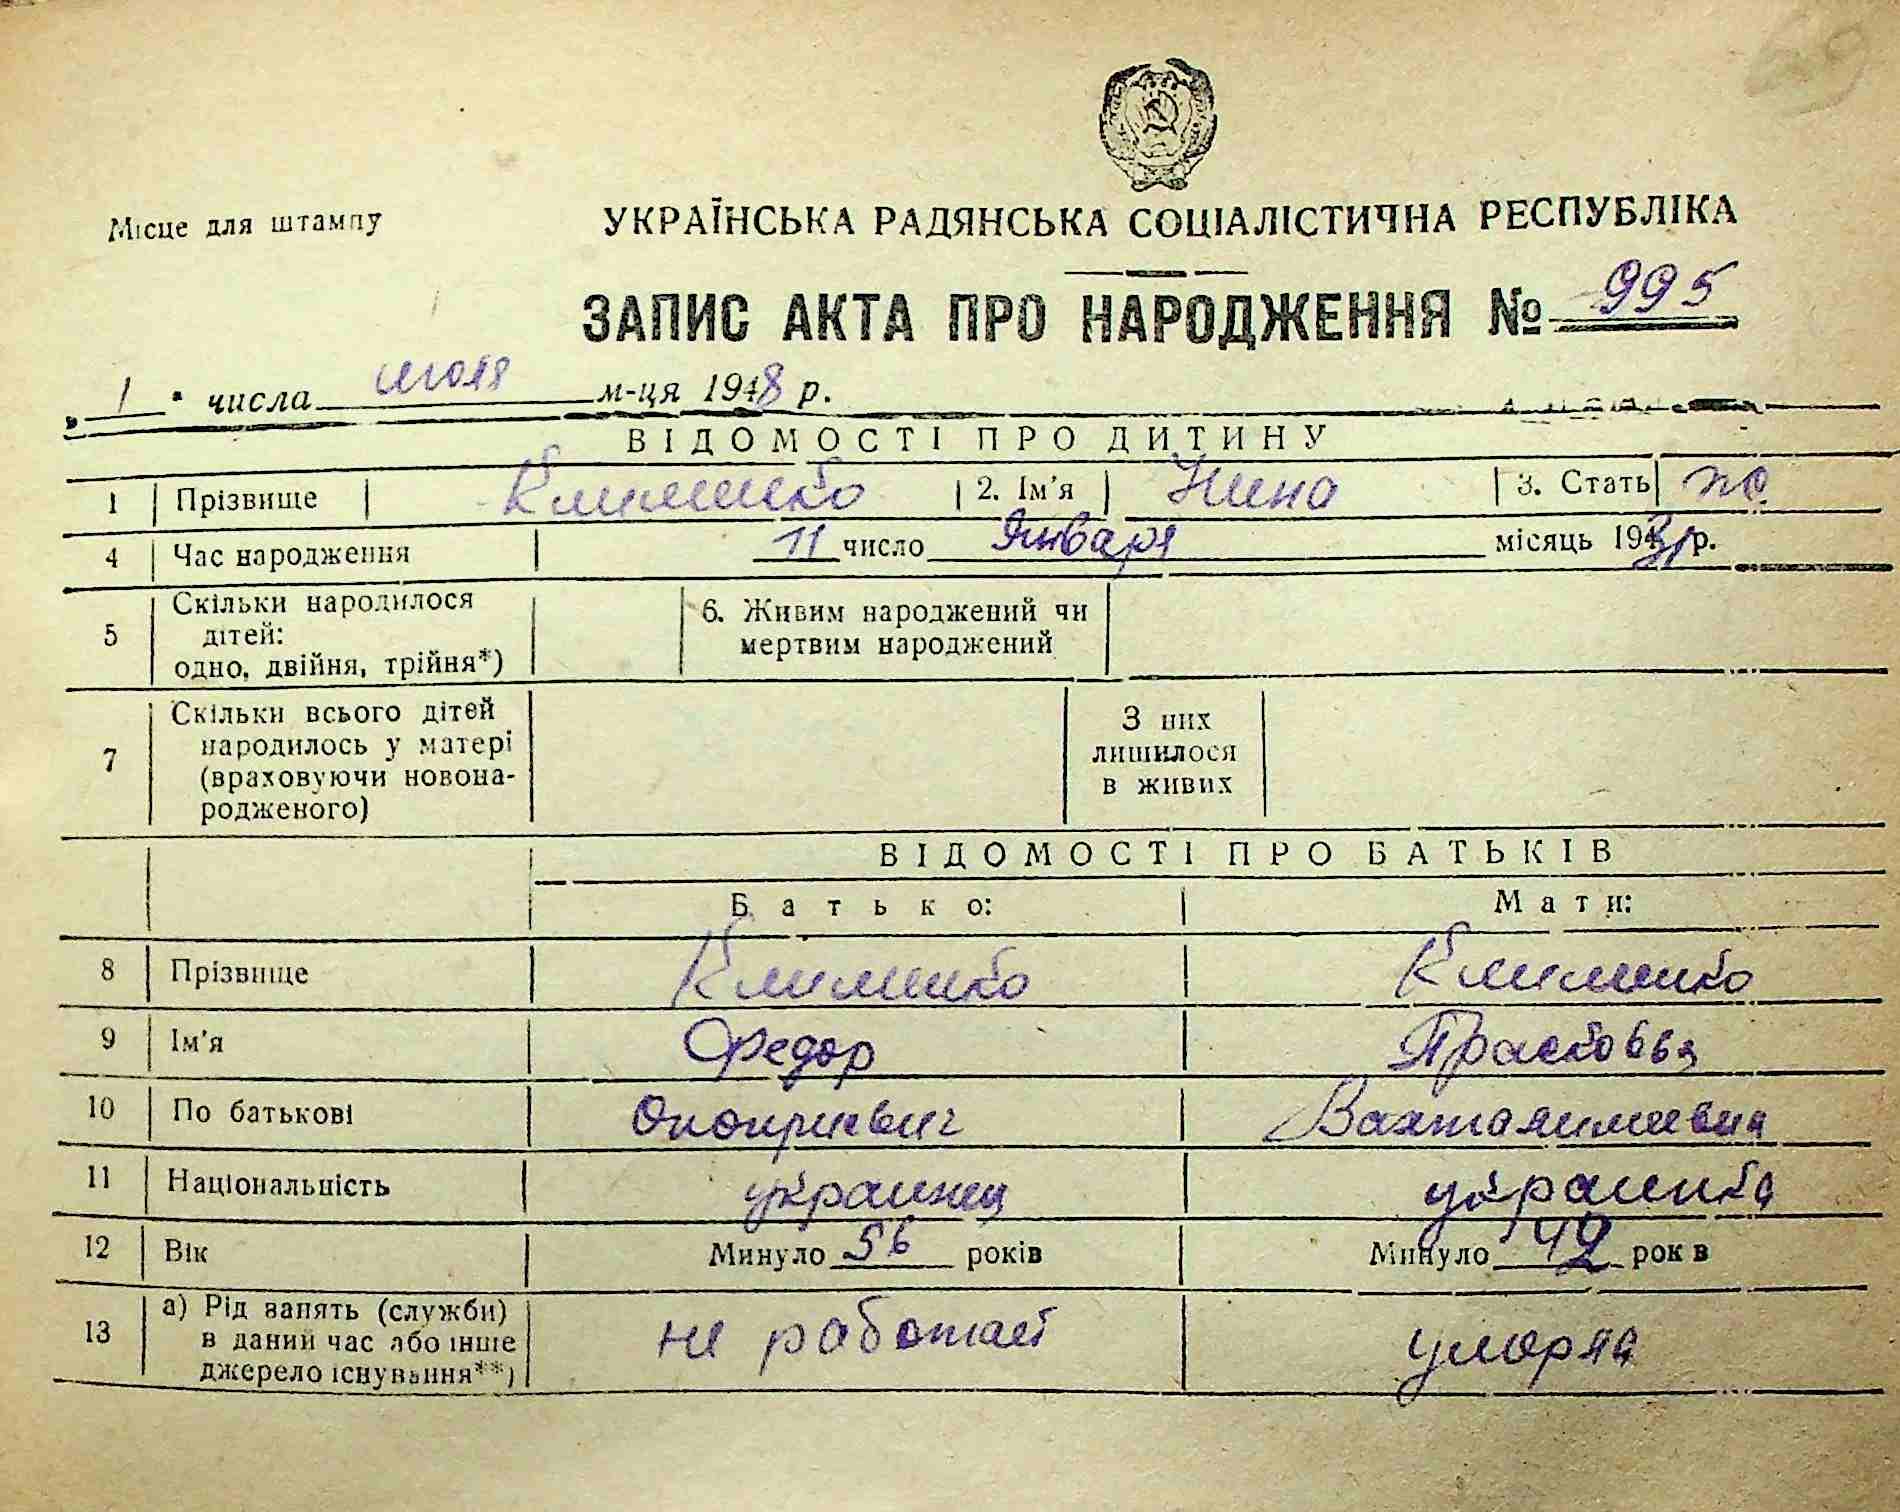 Місце для штампу
УКРАЇНСЬКА РАДЯНСЬКА СОЦІАЛІСТИЧНА РЕСПУБЛІКА
ЗАПИС АКТА ПРО НАРОДЖЕННЯ № 995
„ 1 " числа июля м-ця 1948 р.
ВІДОМОСТІ ПРО ДИТИНУ
1 Прізвище Клименко 2. Ім'я Нина 3. Стать ж.
4 Час народження 11 число Января місяць 1931 р.
5 Скільки народилося дітей: одно, двійня, трійня*) 6. Живим народжений чи мертвим народжений
7 Скільки всього дітей народилось у матері (враховуючи новонародженого) З них лишилося в живих
ВІДОМОСТІ ПРО БАТЬКІВ
Батько: Мати:
8 Прізвище Клименко Клименко
9 Ім'я Федор Прасковья
10 По батькові Оноприевич
11 Національність украинец украинка
12 Вік Минуло 56 років Минуло 42 років
13 а) Рід занять (служби) в даний час або інше джерело існування**) не работает умерла